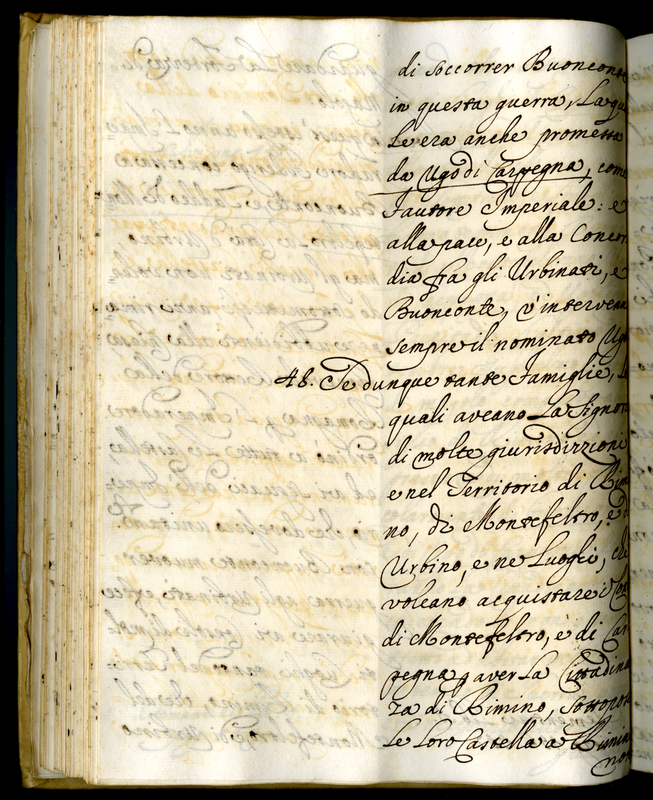 di soccorrer Buonconte
in questa guerra, La qu
Le era anche promessa
da Ugo di Carpegna, come
Fautore Imperiale: e
alla pace, e alla Concor
dia fra gli Urbinati, e
Buonconte, v'intervenn
sempre il nominato Ugo
48. Se dunque tante Famiglie, Le
quali aveano La Signori
di molte giurisdizzioni
e nel Territorio di Rimi
no, di Montefeltro, e d
Urbino, e ne Luoghi, che
voleano acquistare i Con
di Montefeltro, e di Car
pegna p aver La Cittadina
za di Rimino, sottopos
Le Loro Castella a Rimini